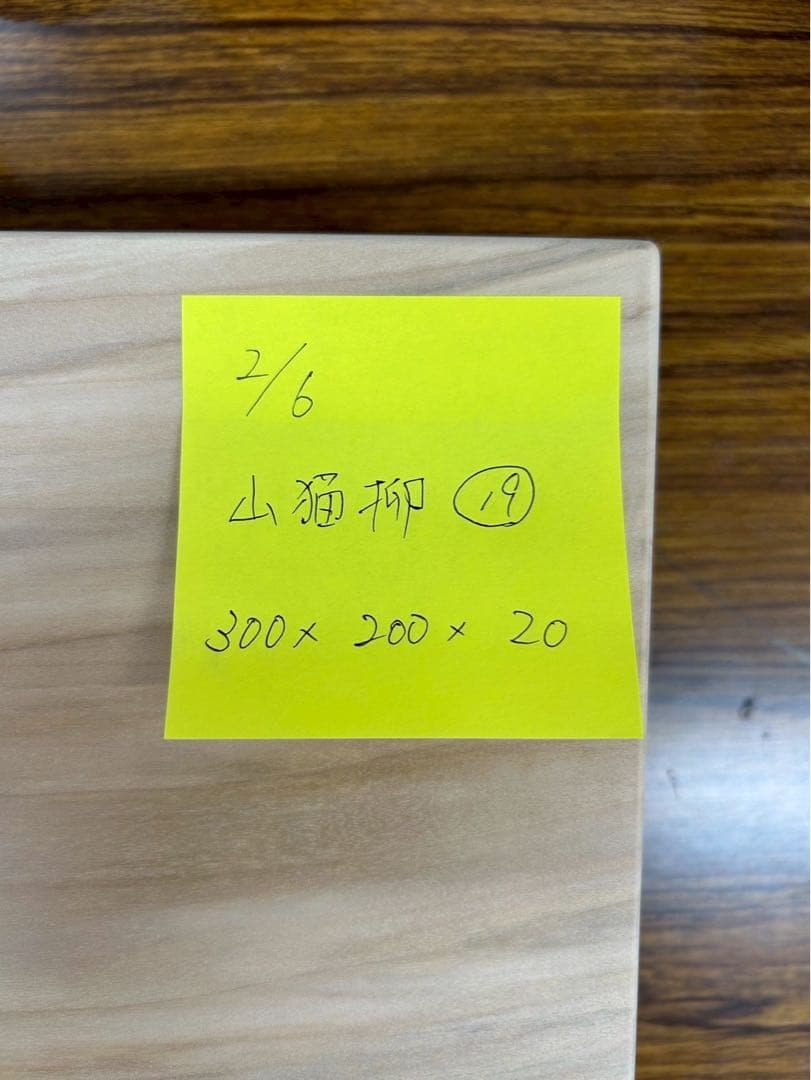 2/6
山猫柳 ⑲
300× 200× 20